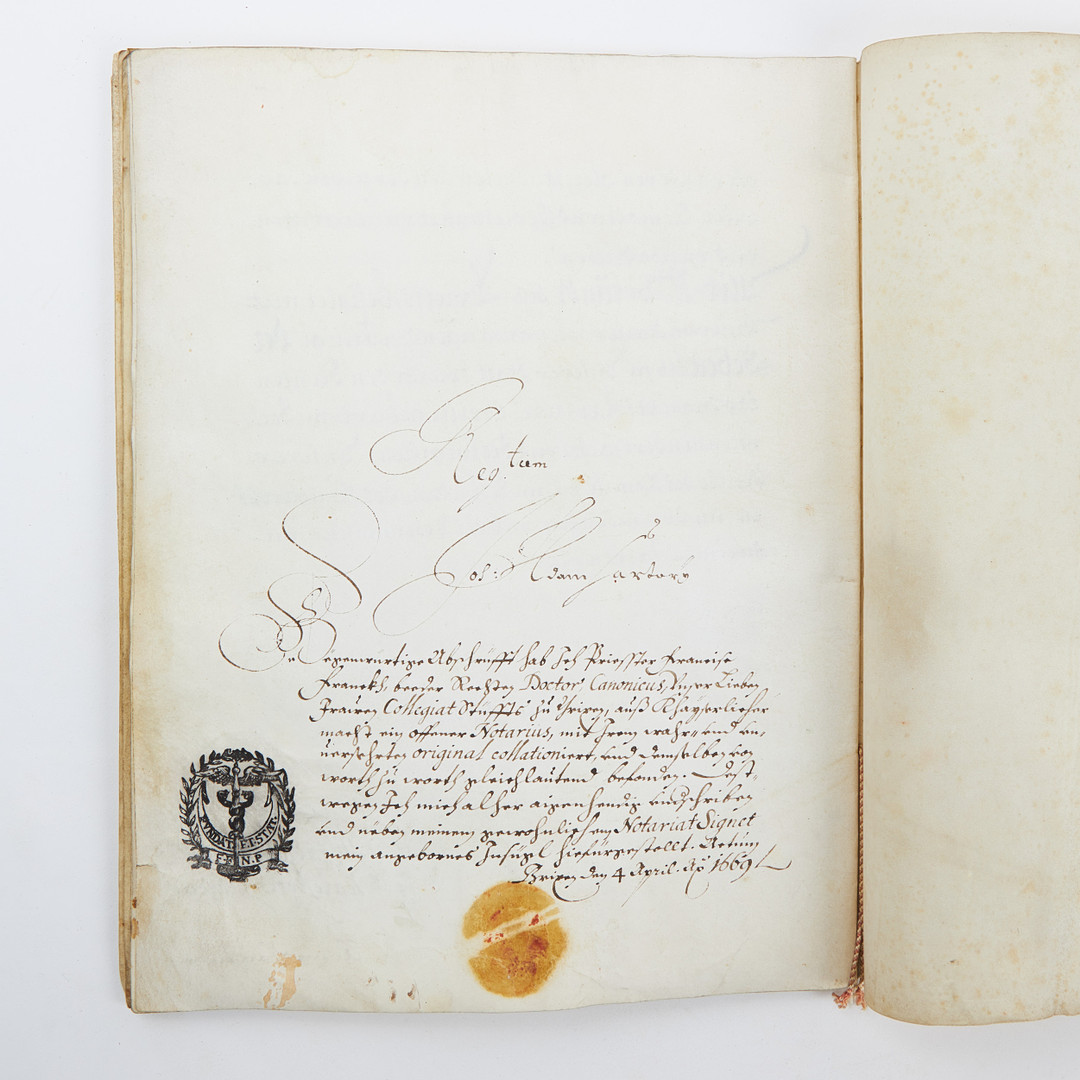 Reg.tum
Joh: Adam Sartory
Gegenwürtige Abschrüfft hab Ich Priesster Francisc
Franckh, beeder Rechten Doctor, Canonicus, Unser Lieben
Frawen Collegiat Stüffts zu Brixen, auß Khayserlicher
macht ein offener Notarius, mit Irem wahr- und un-
uersehrten original collationiert, und demselben von
worth zu worth gleichlautend befonden. Dest-
wegen Ich mich alher aigenhendig undschriben
und neben meinem gewohnlichem Notariat Signet
mein angebornes Insügl hiefürgestellt. Actum
Brixen den 4 April. Ao 1669
FUNDAT ET STAT.
F. F. N. P.